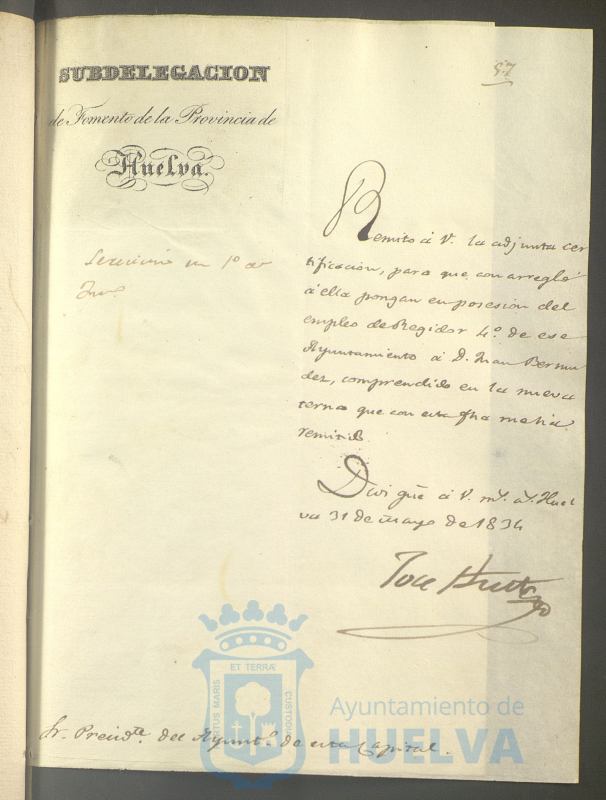 57
SUBDELEGACION
de Fomento de la Provincia de
Huelva.
Remito á V. la adjunta cer
tificacion, para que con arreglo
á ella pongan en posesion del
empleo de Regidor 4.º de ese
Ayuntamiento á D. Juan Bermu
dez, comprendido en la nueva
terna que con esta fha me ha
remitido.
Dios gũe á V. m.s a.s Huel
va 31 de mayo de 1834
Jose Huet
Sr. Presid.te del Ayunt.o de esta Capital.
ET TERRÆ
PORTUS MARIS
CUSTODIA
Ayuntamiento de
HUELVA